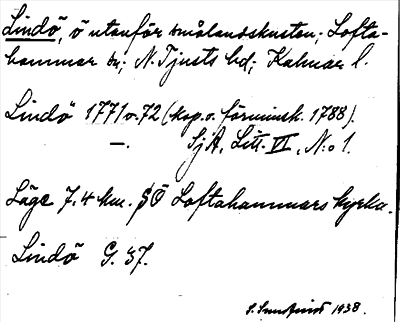 Lindö, ö utanför smålandskusten; Lofta-
hammar sn; N. Tjusts hd; Kalmar l.
Lindö 1771 o. 72 (kop. o. förminsk. 1788).
—. SjA, Litt. VI, N:o 1.
Läge 7,4 km. SÖ Loftahammars kyrka.
Lindö G. 37.
S. 1938.